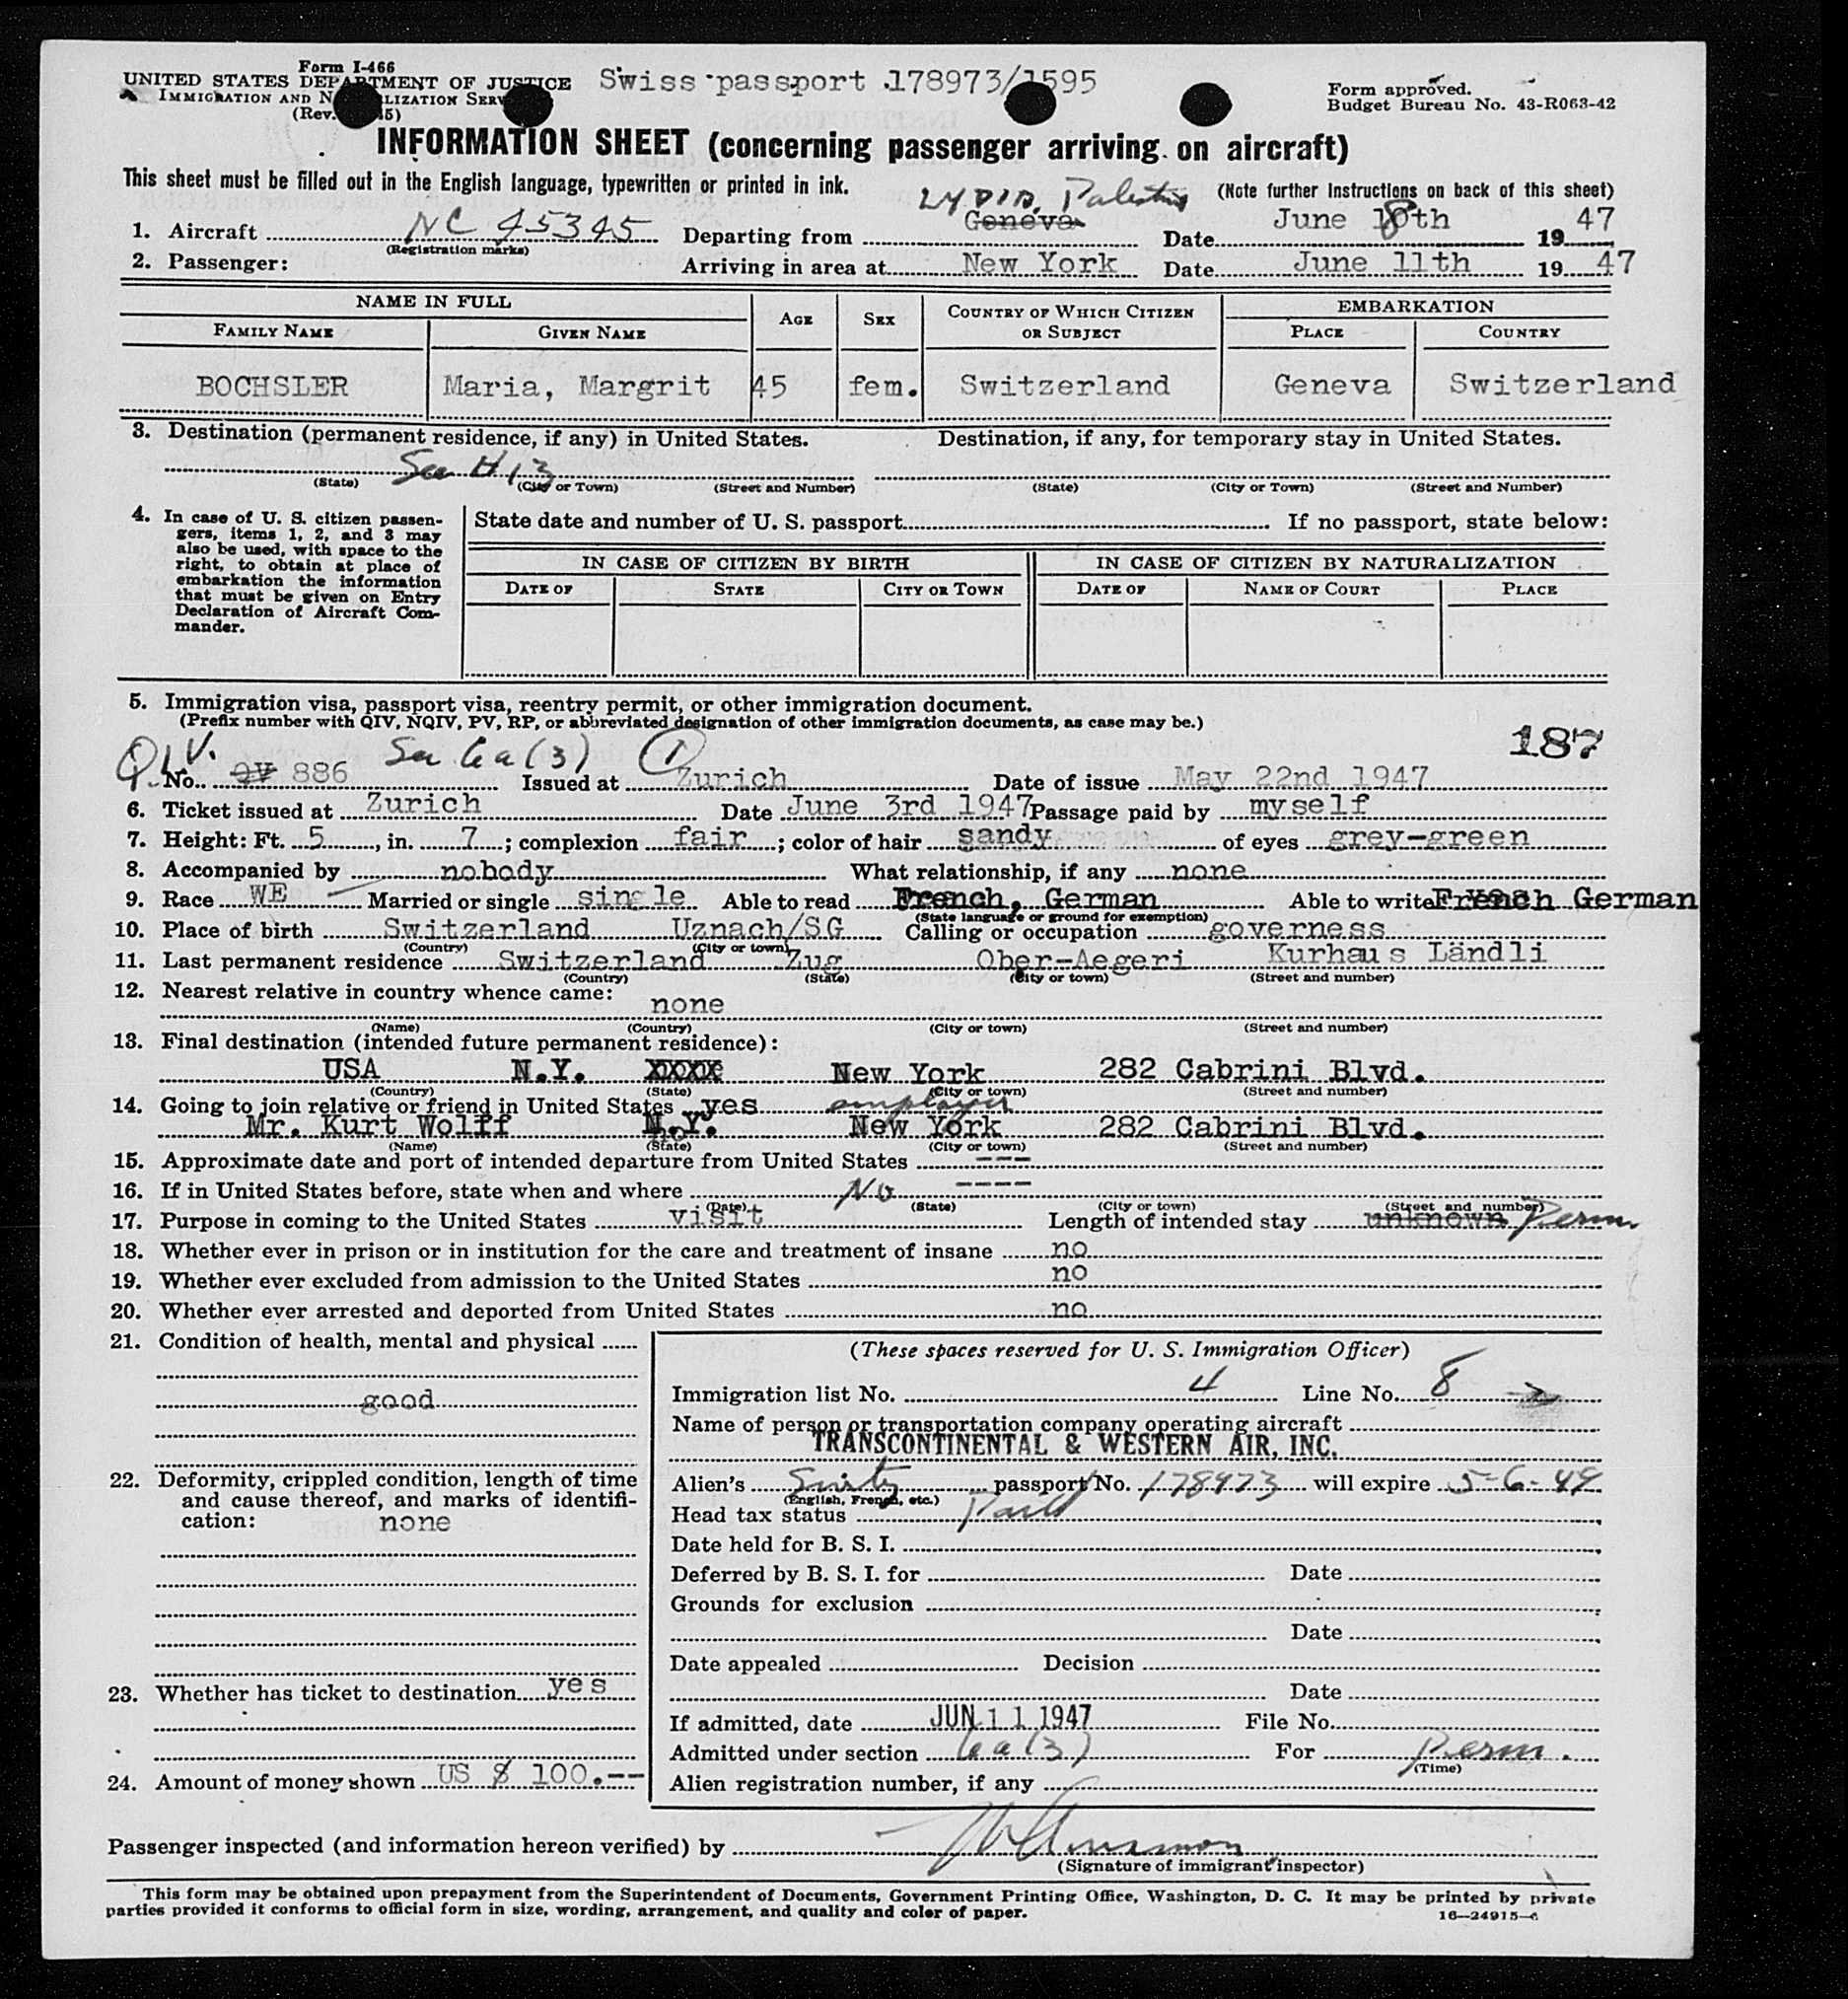 Form I-466
UNITED STATES DEPARTMENT OF JUSTICE Swiss passport 178973/1595 Form approved.
IMMIGRATION AND NATURALIZATION SERVICE Budget Bureau No. 43-R063-42
(Rev.
INFORMATION SHEET (concerning passenger arriving on aircraft)
This sheet must be filled out in the English language, typewritten or printed in ink. (Note further Instructions on back of this sheet)
LYDIA, Palestine
1. Aircraft NC 45345 Departing from Geneva Date June 8th 19 47
(Registration marks)
2. Passenger: Arriving in area at New York Date June 11th 19 47
NAME IN FULL AGE SEX COUNTRY OF WHICH CITIZEN OR SUBJECT EMBARKATION
FAMILY NAME GIVEN NAME PLACE COUNTRY
BOCHSLER Maria, Margrit 45 fem. Switzerland Geneva Switzerland
3. Destination (permanent residence, if any) in United States. Destination, if any, for temporary stay in United States.
See # 13
(State) (City or Town) (Street and Number) (State) (City or Town) (Street and Number)
4. In case of U. S. citizen passengers, items 1, 2, and 3 may also be used, with space to the right, to obtain at place of embarkation the information that must be given on Entry Declaration of Aircraft Commander.
State date and number of U. S. passport If no passport, state below:
IN CASE OF CITIZEN BY BIRTH IN CASE OF CITIZEN BY NATURALIZATION
DATE OF STATE CITY OR TOWN DATE OF NAME OF COURT PLACE
5. Immigration visa, passport visa, reentry permit, or other immigration document.
(Prefix number with QIV, NQIV, PV, RP, or abbreviated designation of other immigration documents, as case may be.)
187
QIV. See 6a(3) 1
No. QV 886 Issued at Zurich Date of issue May 22nd 1947
6. Ticket issued at Zurich Date June 3rd 1947 Passage paid by myself
7. Height: Ft. 5, in. 7; complexion fair; color of hair sandy of eyes grey-green
8. Accompanied by nobody What relationship, if any none
9. Race WE Married or single single Able to read French, German Able to write French German
(State language or ground for exemption)
10. Place of birth Switzerland Uznach/SG Calling or occupation governess
(Country) (City or town)
11. Last permanent residence Switzerland Zug Ober-Aegeri Kurhaus Ländli
(Country) (State) (City or town) (Street and number)
12. Nearest relative in country whence came:
none
(Name) (Country) (City or town) (Street and number)
13. Final destination (intended future permanent residence):
USA N.Y. XXXX New York 282 Cabrini Blvd.
(Country) (State) (City or town) (Street and number)
14. Going to join relative or friend in United States yes employer
Mr. Kurt Wolff N.Y. New York 282 Cabrini Blvd.
(Name) (State) (City or town) (Street and number)
15. Approximate date and port of intended departure from United States ---
16. If in United States before, state when and where No ----
(Date) (State) (City or town) (Street and number)
17. Purpose in coming to the United States visit Length of intended stay unknown Perm.
18. Whether ever in prison or in institution for the care and treatment of insane no
19. Whether ever excluded from admission to the United States no
20. Whether ever arrested and deported from United States no
21. Condition of health, mental and physical
good
22. Deformity, crippled condition, length of time and cause thereof, and marks of identification: none
23. Whether has ticket to destination yes
24. Amount of money shown US $ 100.--
(These spaces reserved for U. S. Immigration Officer)
Immigration list No. 4 Line No. 8
Name of person or transportation company operating aircraft
TRANSCONTINENTAL & WESTERN AIR, INC.
Alien's passport No. 178973 will expire 5-6-49
(English, French, etc.)
Head tax status Paid
Date held for B. S. I.
Deferred by B. S. I. for Date
Grounds for exclusion
Date
Date appealed Decision
Date
If admitted, date JUN 11 1947 File No.
Admitted under section 6a(3) For Perm.
(Time)
Alien registration number, if any
Passenger inspected (and information hereon verified) by
(Signature of immigrant inspector)
This form may be obtained upon prepayment from the Superintendent of Documents, Government Printing Office, Washington, D. C. It may be printed by private
parties provided it conforms to official form in size, wording, arrangement, and quality and color of paper. 16-24915-c